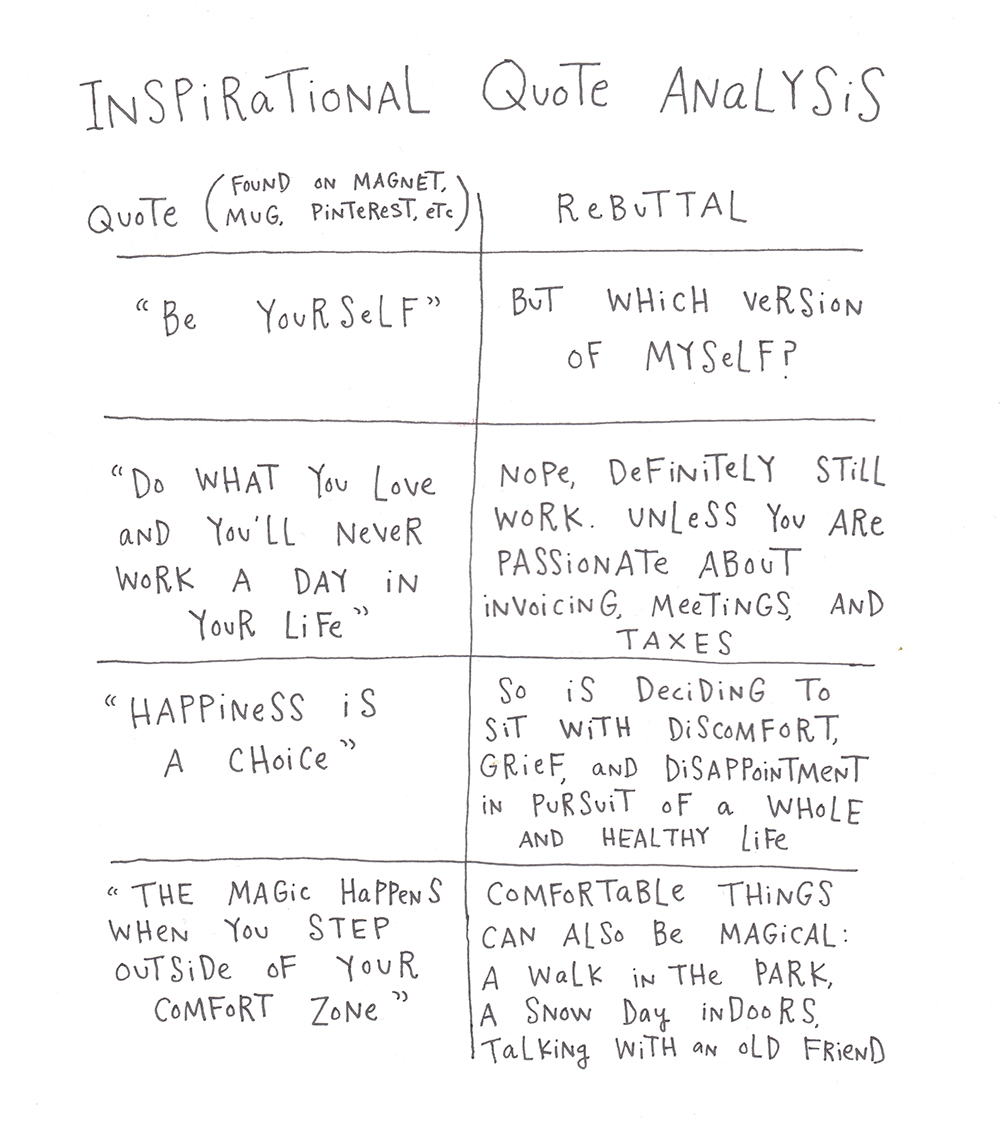 INSPiRaTiONAL QuoTe ANaLYSiS
QuoTe (FOUND ON MAGNET,
MUG, PiNTeReST, eTc)
ReBuTTAL
“Be YouRSeLF”
BuT WHicH VeRSioN
oF MYSeLF?
“Do WHAT You Love
aND You'LL NeveR
WoRK A DAY iN
YouR LiFe”
NoPe, DeFiNiTeLY STiLL
WoRK. UNLeSS You ARe
PASSioNATe ABouT
iNVoiciNG, MeeTiNGS, AND
TAXES
“HAPPiNeSS iS
A CHoice”
So iS DeciDiNG To
SiT WiTH DiScoMFoRT,
GRieF, aND DiSAPPoiNTMeNT
iN PuRSuiT oF a WHoLE
AND HEALTHY LiFe
“THE MAGic HaPPeNS
WHeN You STEP
ouTSiDe oF YouR
CoMFoRT ZoNe”
CoMFoRTaBLe THiNGS
CAN ALSo Be MAGicAL:
A WaLK iN THe PARK,
A SNoW Day iNDooRS,
TaLKing WiTH aN oLD FRieND